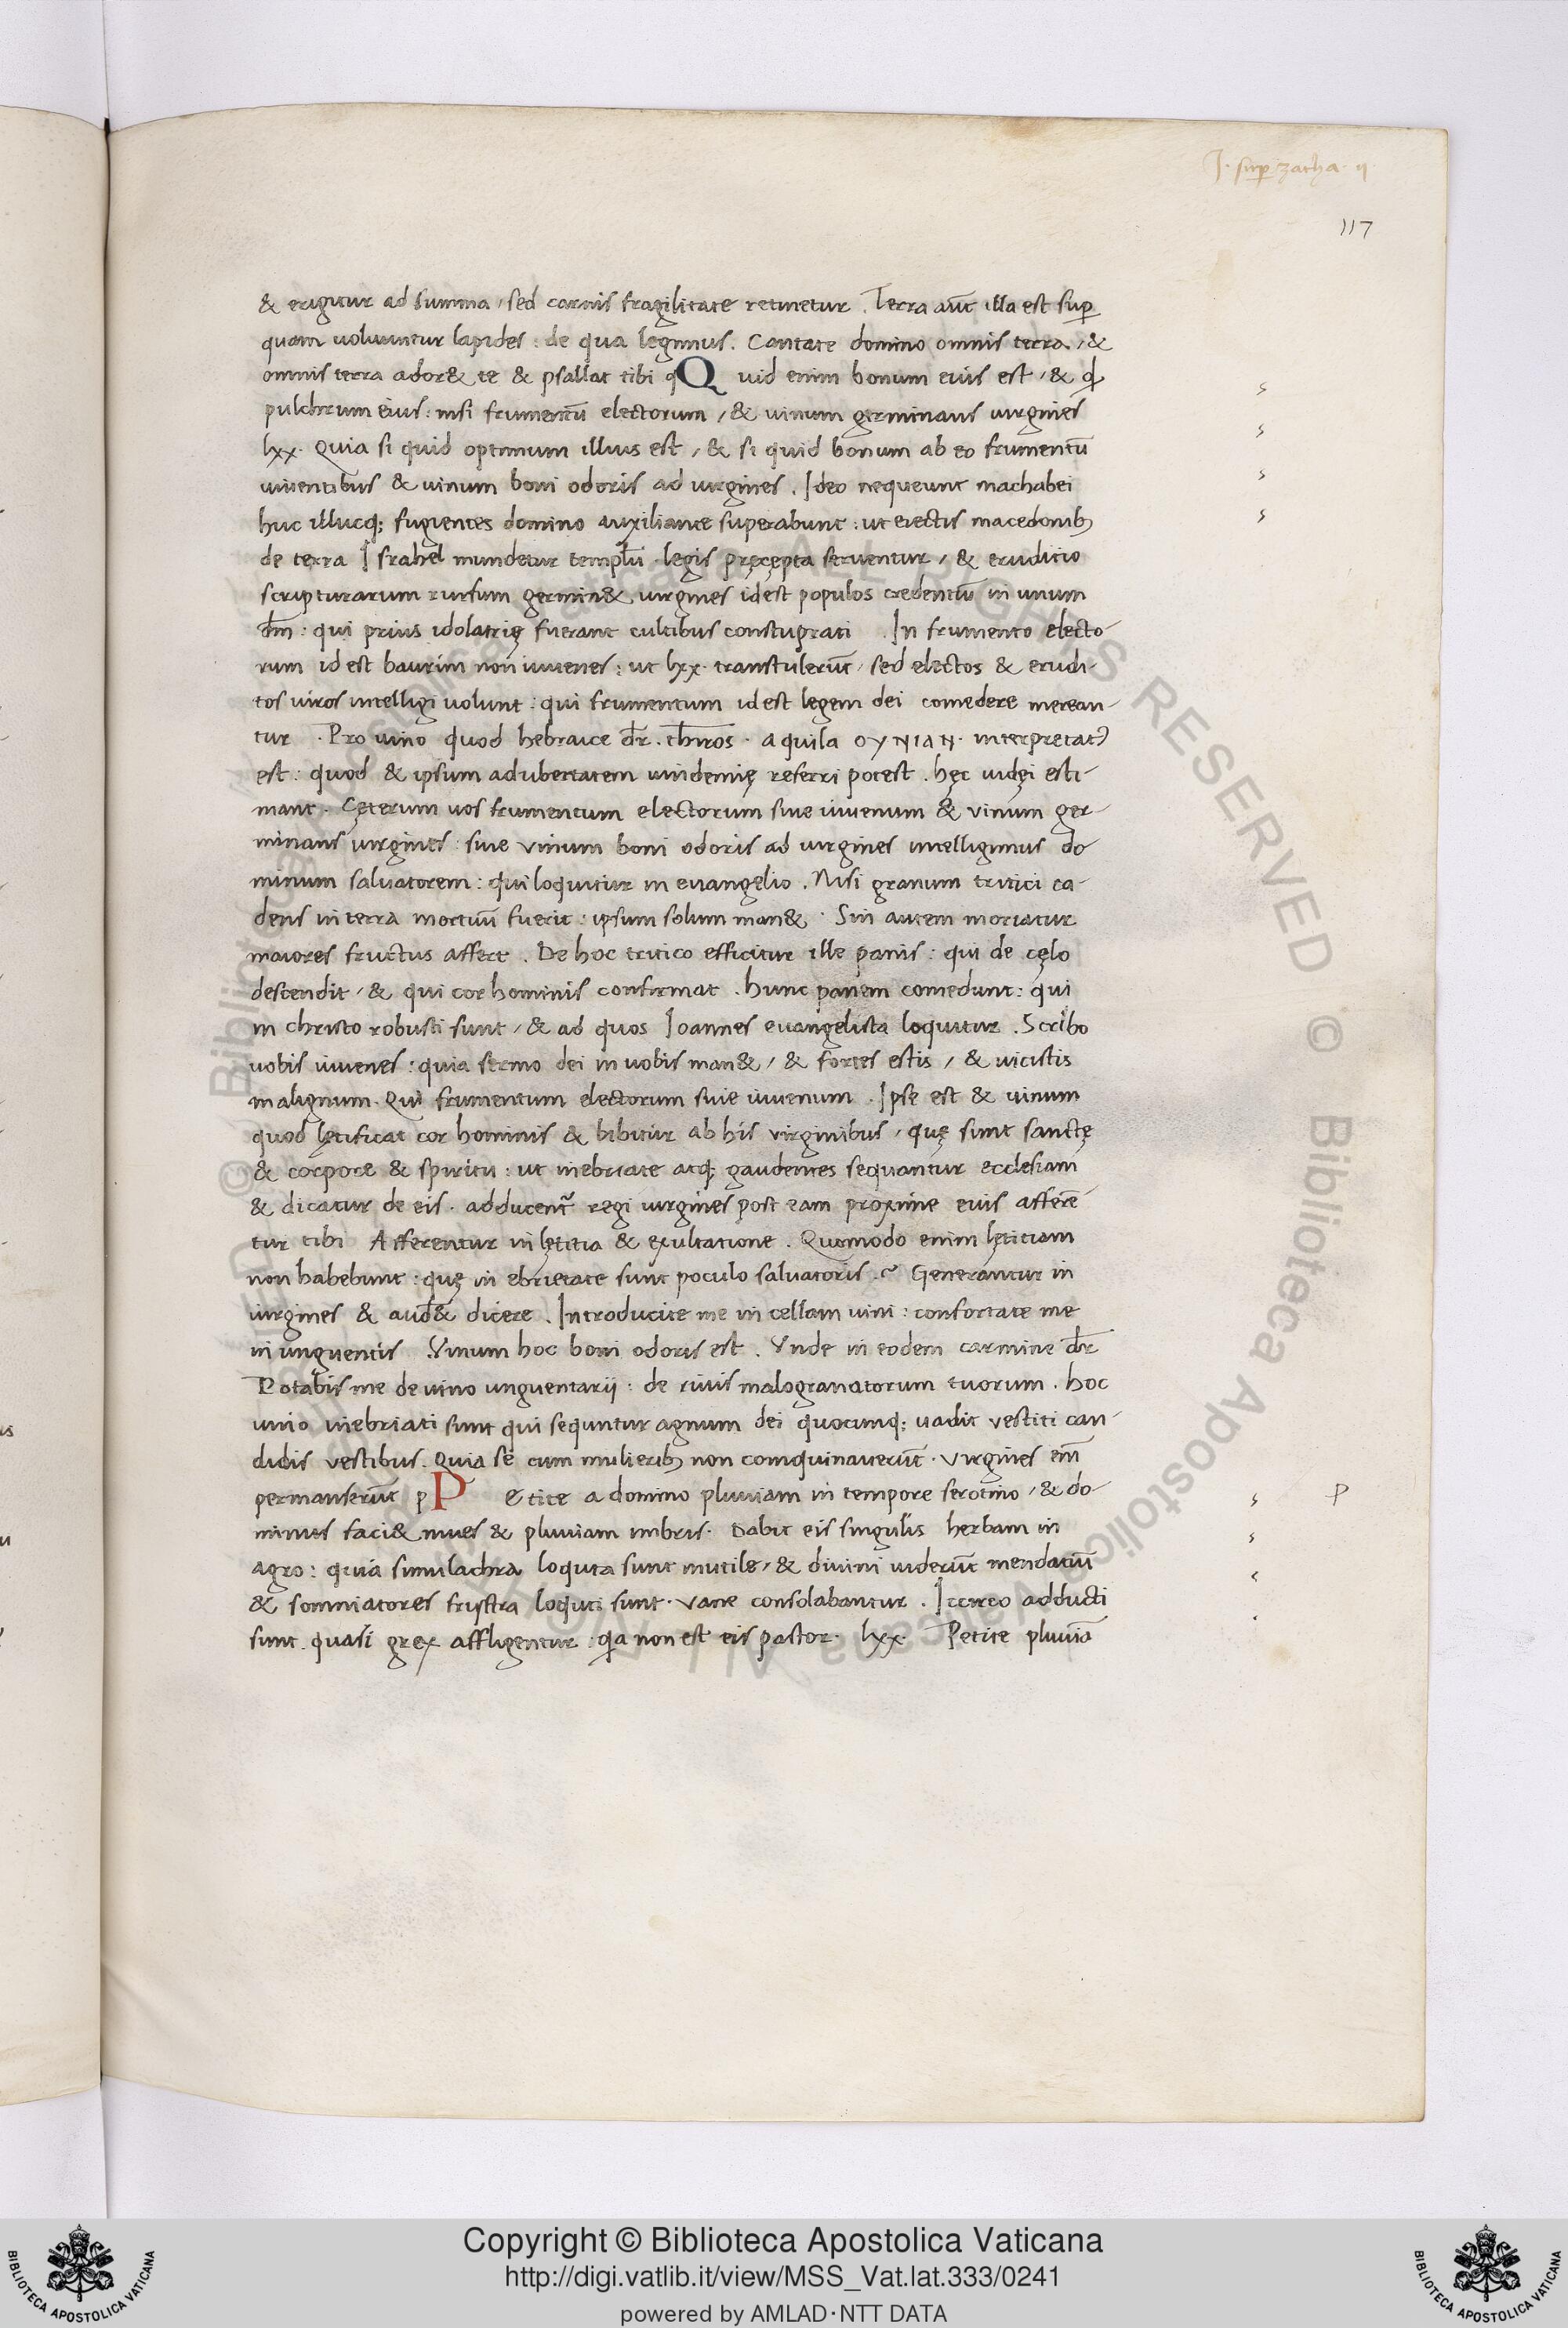 J. sup zacha. ij
117
& erigitur ad summa, sed carnis fragilitate retinetur. Terra aūt illa est sup
quam uoluuntur lapides: de qua legimus. Cantate domino omnis terra, &
omnis terra ador& te & psallat tibi qQuid enim bonum eius est, & qd
pulchrum eius: nisi frumentū electorum, & uinum germinans uirgines
lxx. Quia si quid optimum illius est, & si quid bonum ab eo frumentū
iuuentibus & uinum boni odoris ad uirgines. Ideo nequeunt machabei
huc illucq; fugientes domino auxiliante superabunt: ut erectis macedonib;
de terra Israhel mundetur templū. legis pręcępta seruentur, & eruditio
scripturarum rursum germin& uirgines idest populos credentiū in unum
dm̄: qui prius idolatrię fuerant cultibus constuprati. In frumento electo-
rum idest baurim non iuuenes: ut lxx. transtulerūt, sed electos & erudi-
tos uiros intelligi uolunt: qui frumentum idest legem dei comedere merean-
tur. Pro uino quod hebraice dr̄. thiros. aquila ΟΥΝΙΑΝ. interpretat
est: quod & ipsum ad ubertatem uindemię referri potest. hęc iudęi esti-
mant. Cęterum nos frumentum electorum siue iuuenum & vinum ger-
minans uirgines: siue vinum boni odoris ad uirgines intelligimus do
minum saluatorem: qui loquitur in euangelio. Nisi granum tritici ca-
dens in terra mortuū fuerit: ipsum solum man&. Sin autem moriatur
maiores fructus affert. De hoc tritico efficitur ille panis: qui de cęlo
descendit, & qui cor hominis confirmat. hunc panem comedunt: qui
in christo robusti sunt, & ad quos Ioannes euangelista loquitur. Scribo
uobis iuuenes: quia sermo dei in uobis man&, & fortes estis, & uicistis
malignum. Qui frumentum electorum siue iuuenum. Ipse est & uinum
quod lętificat cor hominis & bibitur ab his virginibus, quę sunt sanctę
& corpore & spiritu: ut inebriate atq; gaudentes sequantur ecclesiam
& dicatur de eis. adducent regi uirgines post eam proxime eius afferē-
tur tibi Afferentur in lętitia & exultatione. Quomodo enim lętitiam
non habebunt: quę in ebrietate sunt poculo saluatoris. Generantur in
uirgines & aud& dicere. Introducite me in cellam uini: confortate me
in unguentis. Vinum hoc boni odoris est. Vnde in eodem carmine dr̄
Potabis me de uino unguentarij: de riuis malogranatorum tuorum. hoc
uino inebriati sunt qui sequntur agnum dei quocunq; uadit vestiti can-
didis vestibus. Quia se cum mulierib; non coinquinauerūt. Virgines em̄
permanserūt pPEtite a domino pluuiam in tempore serotino, & do-
P
minus faci& niues & pluuiam imbris. Dabit eis singulis herbam in
agro: quia simulachra loquta sunt inutile, & diuini uiderūt mendatiū
& somniatores frustra loquti sunt. vane consolabantur. Iccirco adducti
sunt quasi grex affligentur: qa non est eis pastor. lxx. Petite pluuiā
Copyright © Biblioteca Apostolica Vaticana
http://digi.vatlib.it/view/MSS_Vat.lat.333/0241
powered by AMLAD·NTT DATA